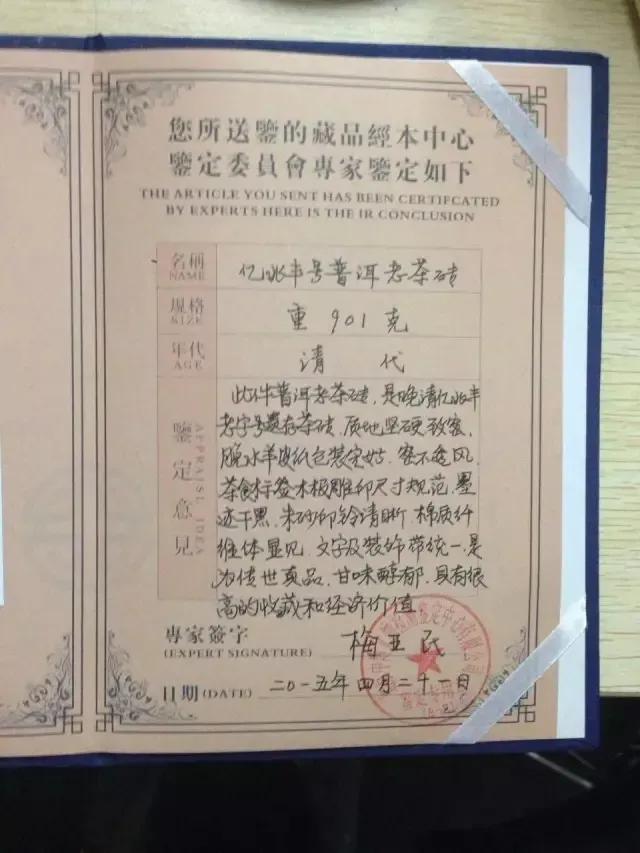 您所送鑒的藏品經本中心
鑒定委員會專家鑒定如下
THE ARTICLE YOU SENT HAS BEEN CERTIFCATED
BY EXPERTS HERE IS THE IR CONCLUSION
名稱 NAME 亿兆丰号普洱老茶砖
規格 SIZE 重901克
年代 AGE 清代
鑒定意見 APPRAISL IDEA
此件普洱老茶砖，是晚清亿兆丰
老字号遗存茶砖，质地坚硬致密，
脱水羊皮纸包装完好，密不透风，
茶食标签木板雕印尺寸规范，墨
迹干黑，朱砂印铃清晰，棉质纤
维体显见，文字及装饰带统一，是
为传世真品，甘味醇郁，具有很
高的收藏和经济价值
專家簽字 梅亚民
(EXPERT SIGNATURE)
日期(DATE) 二〇一五年四月二十一日